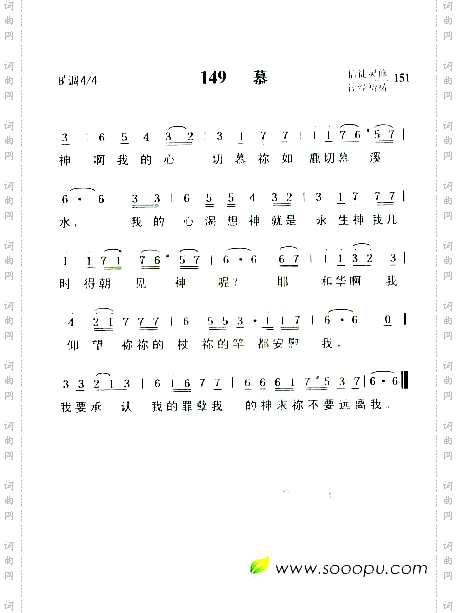 B♭调4/4 149 慕 信徒灵修 151
3 6 5 4 3 2 | 3 1 7 7 | 1 1 7 6 · 5 7
神 啊 我 的 心 切 慕 祢 如 鹿 切 慕 溪
6 · 6 3 3 | 6 5 5 6 3 2 | 3 1 7 7 7
水， 我 的 心 渴 想 神 就 是 永 生 神 我 几
1 1 7 1 7 6 · 5 7 | 6 · 6 6 7 | 1 1 3 2 3
时 得 朝 见 神 呢？ 耶 和 华 啊 我
4 2 1 7 7 7 | 6 5 5 3 · 1 1 1 | 6 · 6 0 |
仰 望 祢 祢 的 杖 祢 的 竿 都 安 慰 我 。
3 3 2 1 3 | 6 1 6 7 7 | 6 6 6 6 1 7 5 3 7 | 6 - 6
我 要 承 认 我 的 罪 我 的 神 求 祢 不 要 远 离 我 。
www.sooopu.com
词曲网